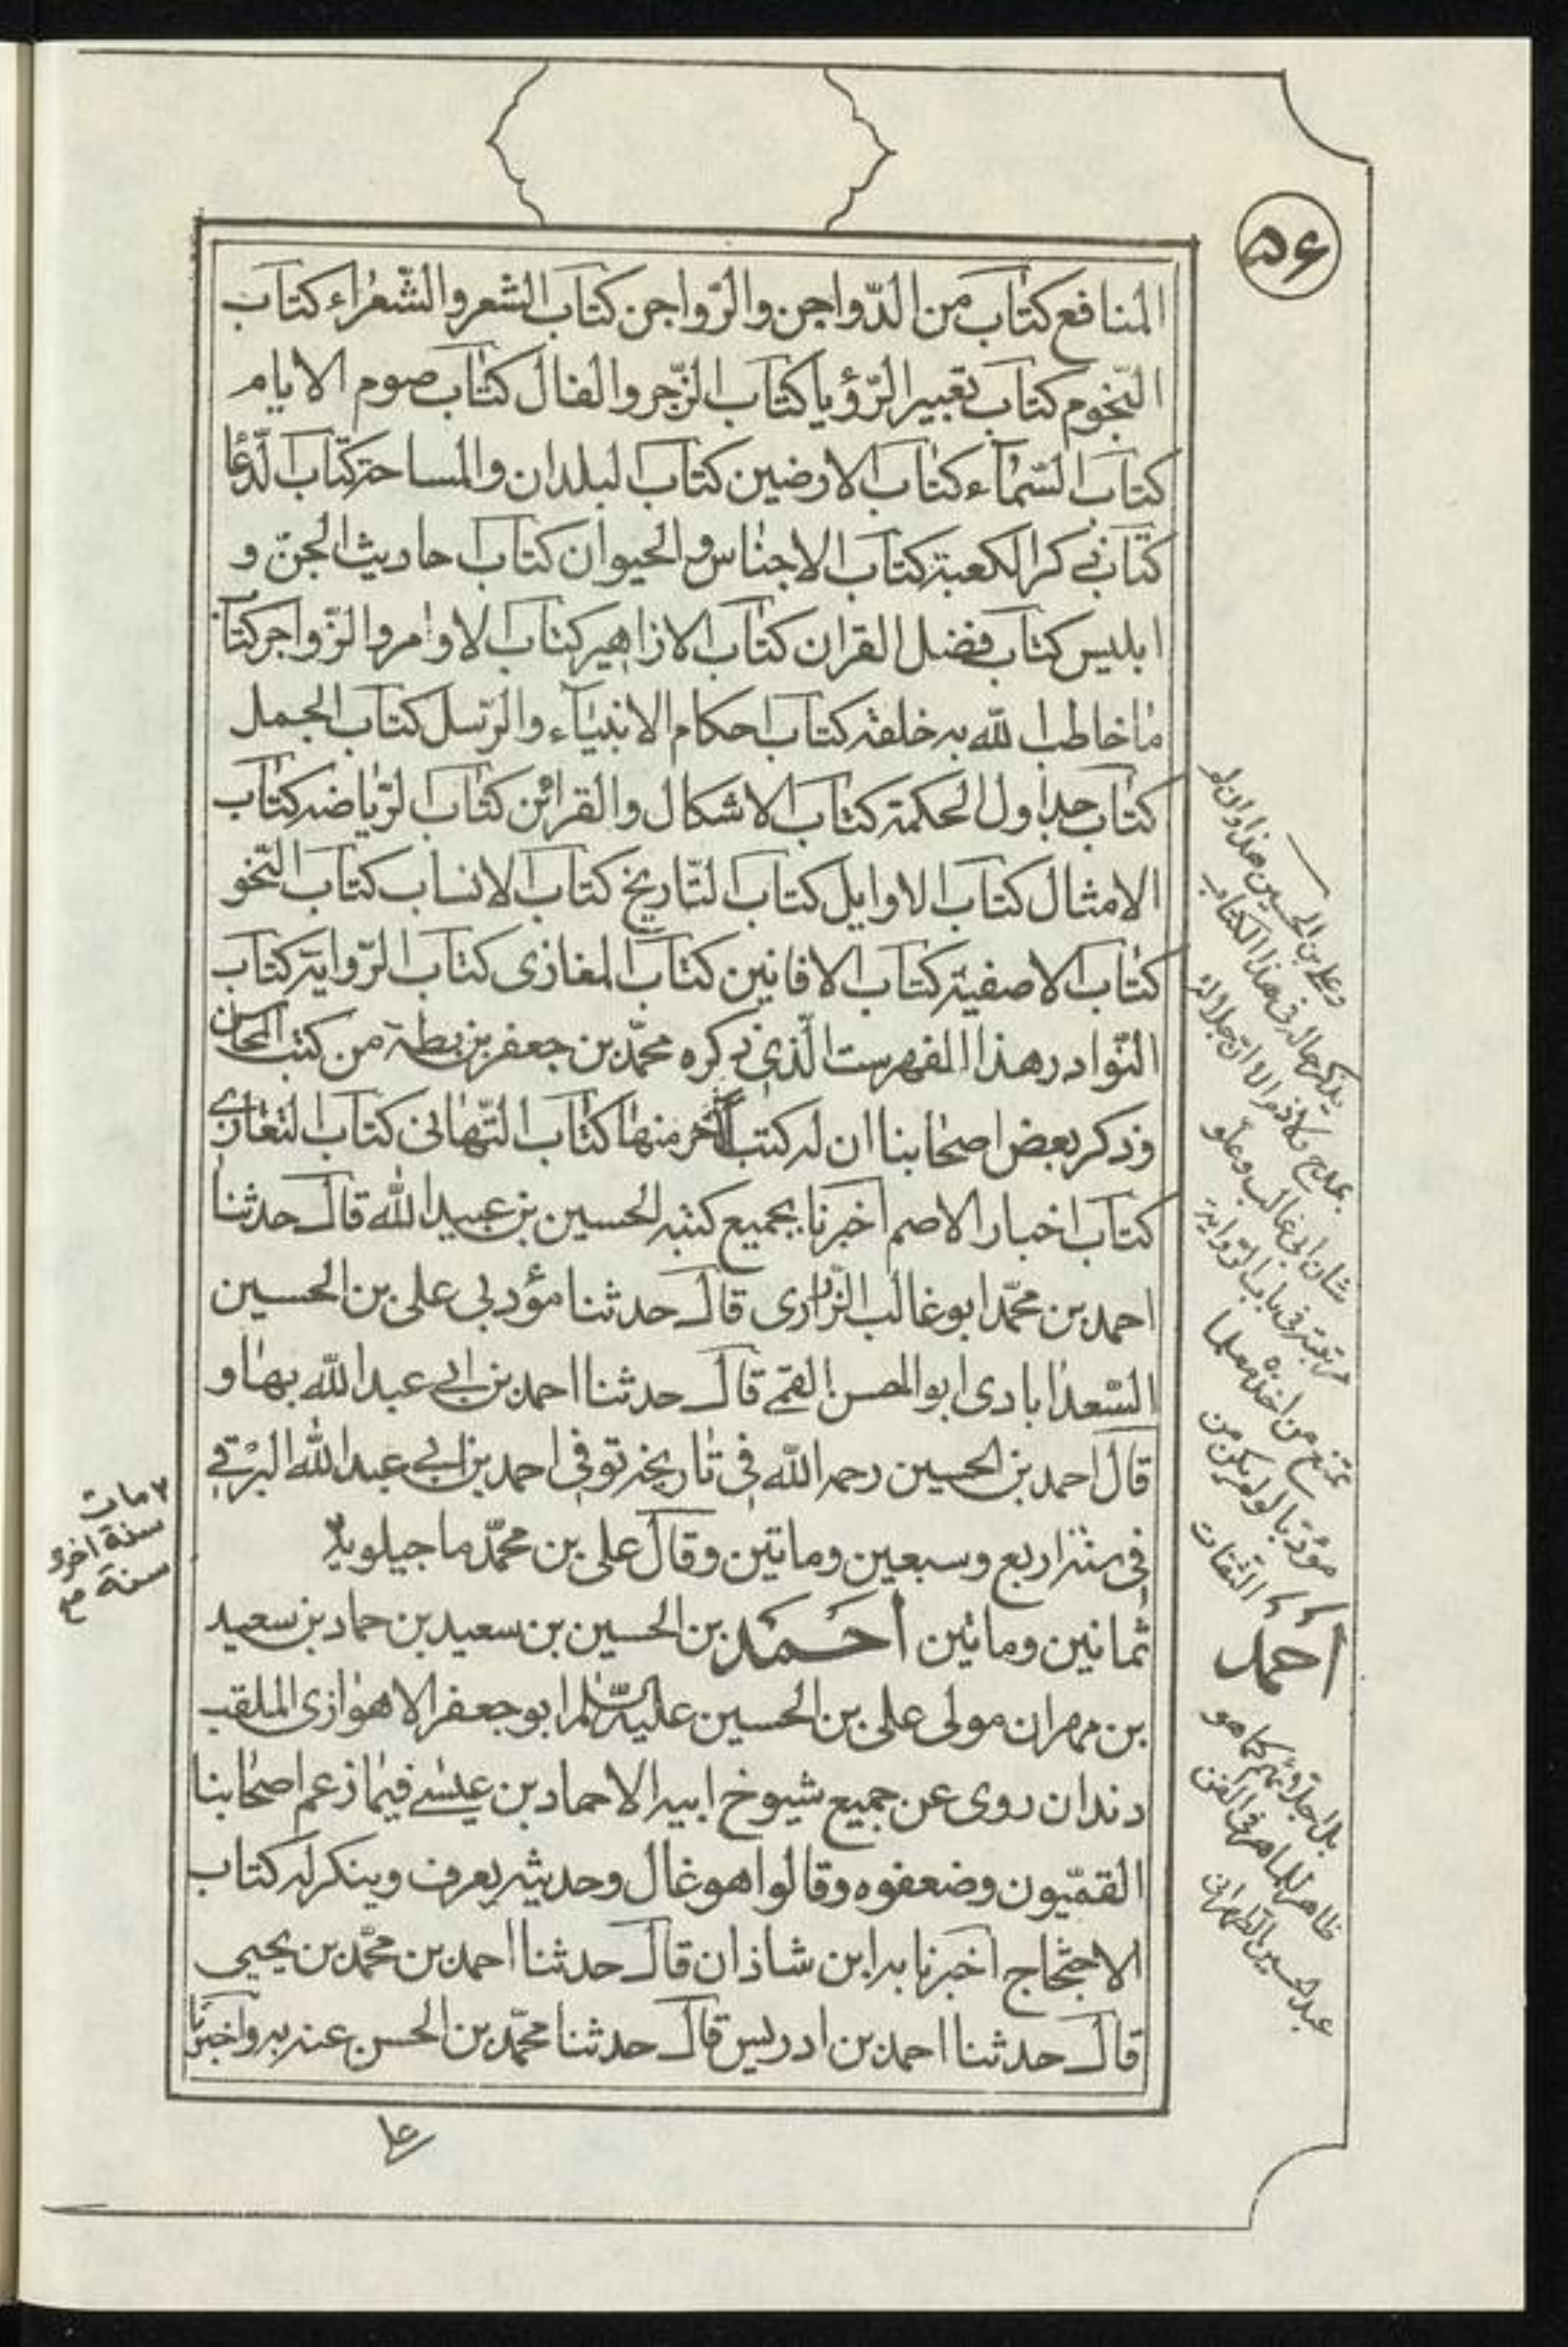 ٥۶
المنافع كتاب من الدّواجن والرّواجن كتاب الشعر والشّعراء كتاب
النّجوم كتاب تعبير الرّؤيا كتاب الزّجر والفال كتاب صوم الايام
كتاب السّمآء كتاب الارضين كتاب البلدان والمساحة كتاب الدّعا
كتاب ذكر الكعبة كتاب الاجناس والحيوان كتاب احاديث الجنّ و
ابليس كتاب فضل القران كتاب الازاهير كتاب الاوامر والزّواجر كتاب
ما خاطب الله به خلقه كتاب احكام الانبيآء والرّسل كتاب الجمل
كتاب جداول الحكمة كتاب الاشكال والقرائن كتاب الرّياضه كتاب
الامثال كتاب الاوايل كتاب التّاريخ كتاب الانساب كتاب النّحو
كتاب الاصفية كتاب الافانين كتاب المغازى كتاب الرّواية كتاب
النّوادر هذا الفهرست الّذى ذكره محمّد بن جعفر بن بطة من كتب المحاسن
وذكر بعض اصحابنا ان له كتب اخر منها كتاب التّهانى كتاب التعازى
كتاب اخبار الاصم اخبرنا بجميع كتبه الحسين بن عبيد الله قال حدثنا
احمد بن محمّد ابو غالب الزّرارى قال حدثنا مؤدبى على بن الحسين
السّعدابادى ابو الحسن القمّى قال حدثنا احمد بن ابى عبد الله بها و
قال احمد بن الحسين رحمه الله فى تاريخه توفى احمد بن ابى عبد الله البرْقى
فى سنة اربع وسبعين وماتين وقال على بن محمّد ماجيلويه ٧
ثمانين وماتين احمد بن الحسين بن سعيد بن حماد بن سعيد
بن مهران مولى على بن الحسين عليه السّلم ابو جعفر الاهوازى الملقب
دندان روى عن جميع شيوخ ابيه الا حماد بن عيسى فيما زعم اصحابنا
القمّيون وضعفوه وقالوا هو غال وحديثه يعرف وينكر له كتاب
الاحتجاج اخبرنا به ابن شاذان قال حدثنا احمد بن محمّد بن يحيى
قال حدثنا احمد بن ادريس قال حدثنا محمّد بن الحسن عنه به واخبرنا
٧ مات
سنة اخرى
سنة
وعلى بن الحسين هذا وان لو
يذكر حاله فى هذا الكتاب
بمدح ولا ذم الا ان جلالة
شان ابى غالب وعلو
مرتبته فى باب الرواية
تمنع من اخذه معلما
مؤدبا لو لم يكن من
الثقات
احمد
ظاهر للماهر فى الفن
عبد الحسين الطهرانى